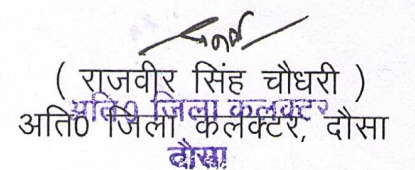 ( राजवीर सिंह चौधरी )
अति0 जिला कलक्टर
अति0 जिला कलेक्टर, दौसा
दौसा